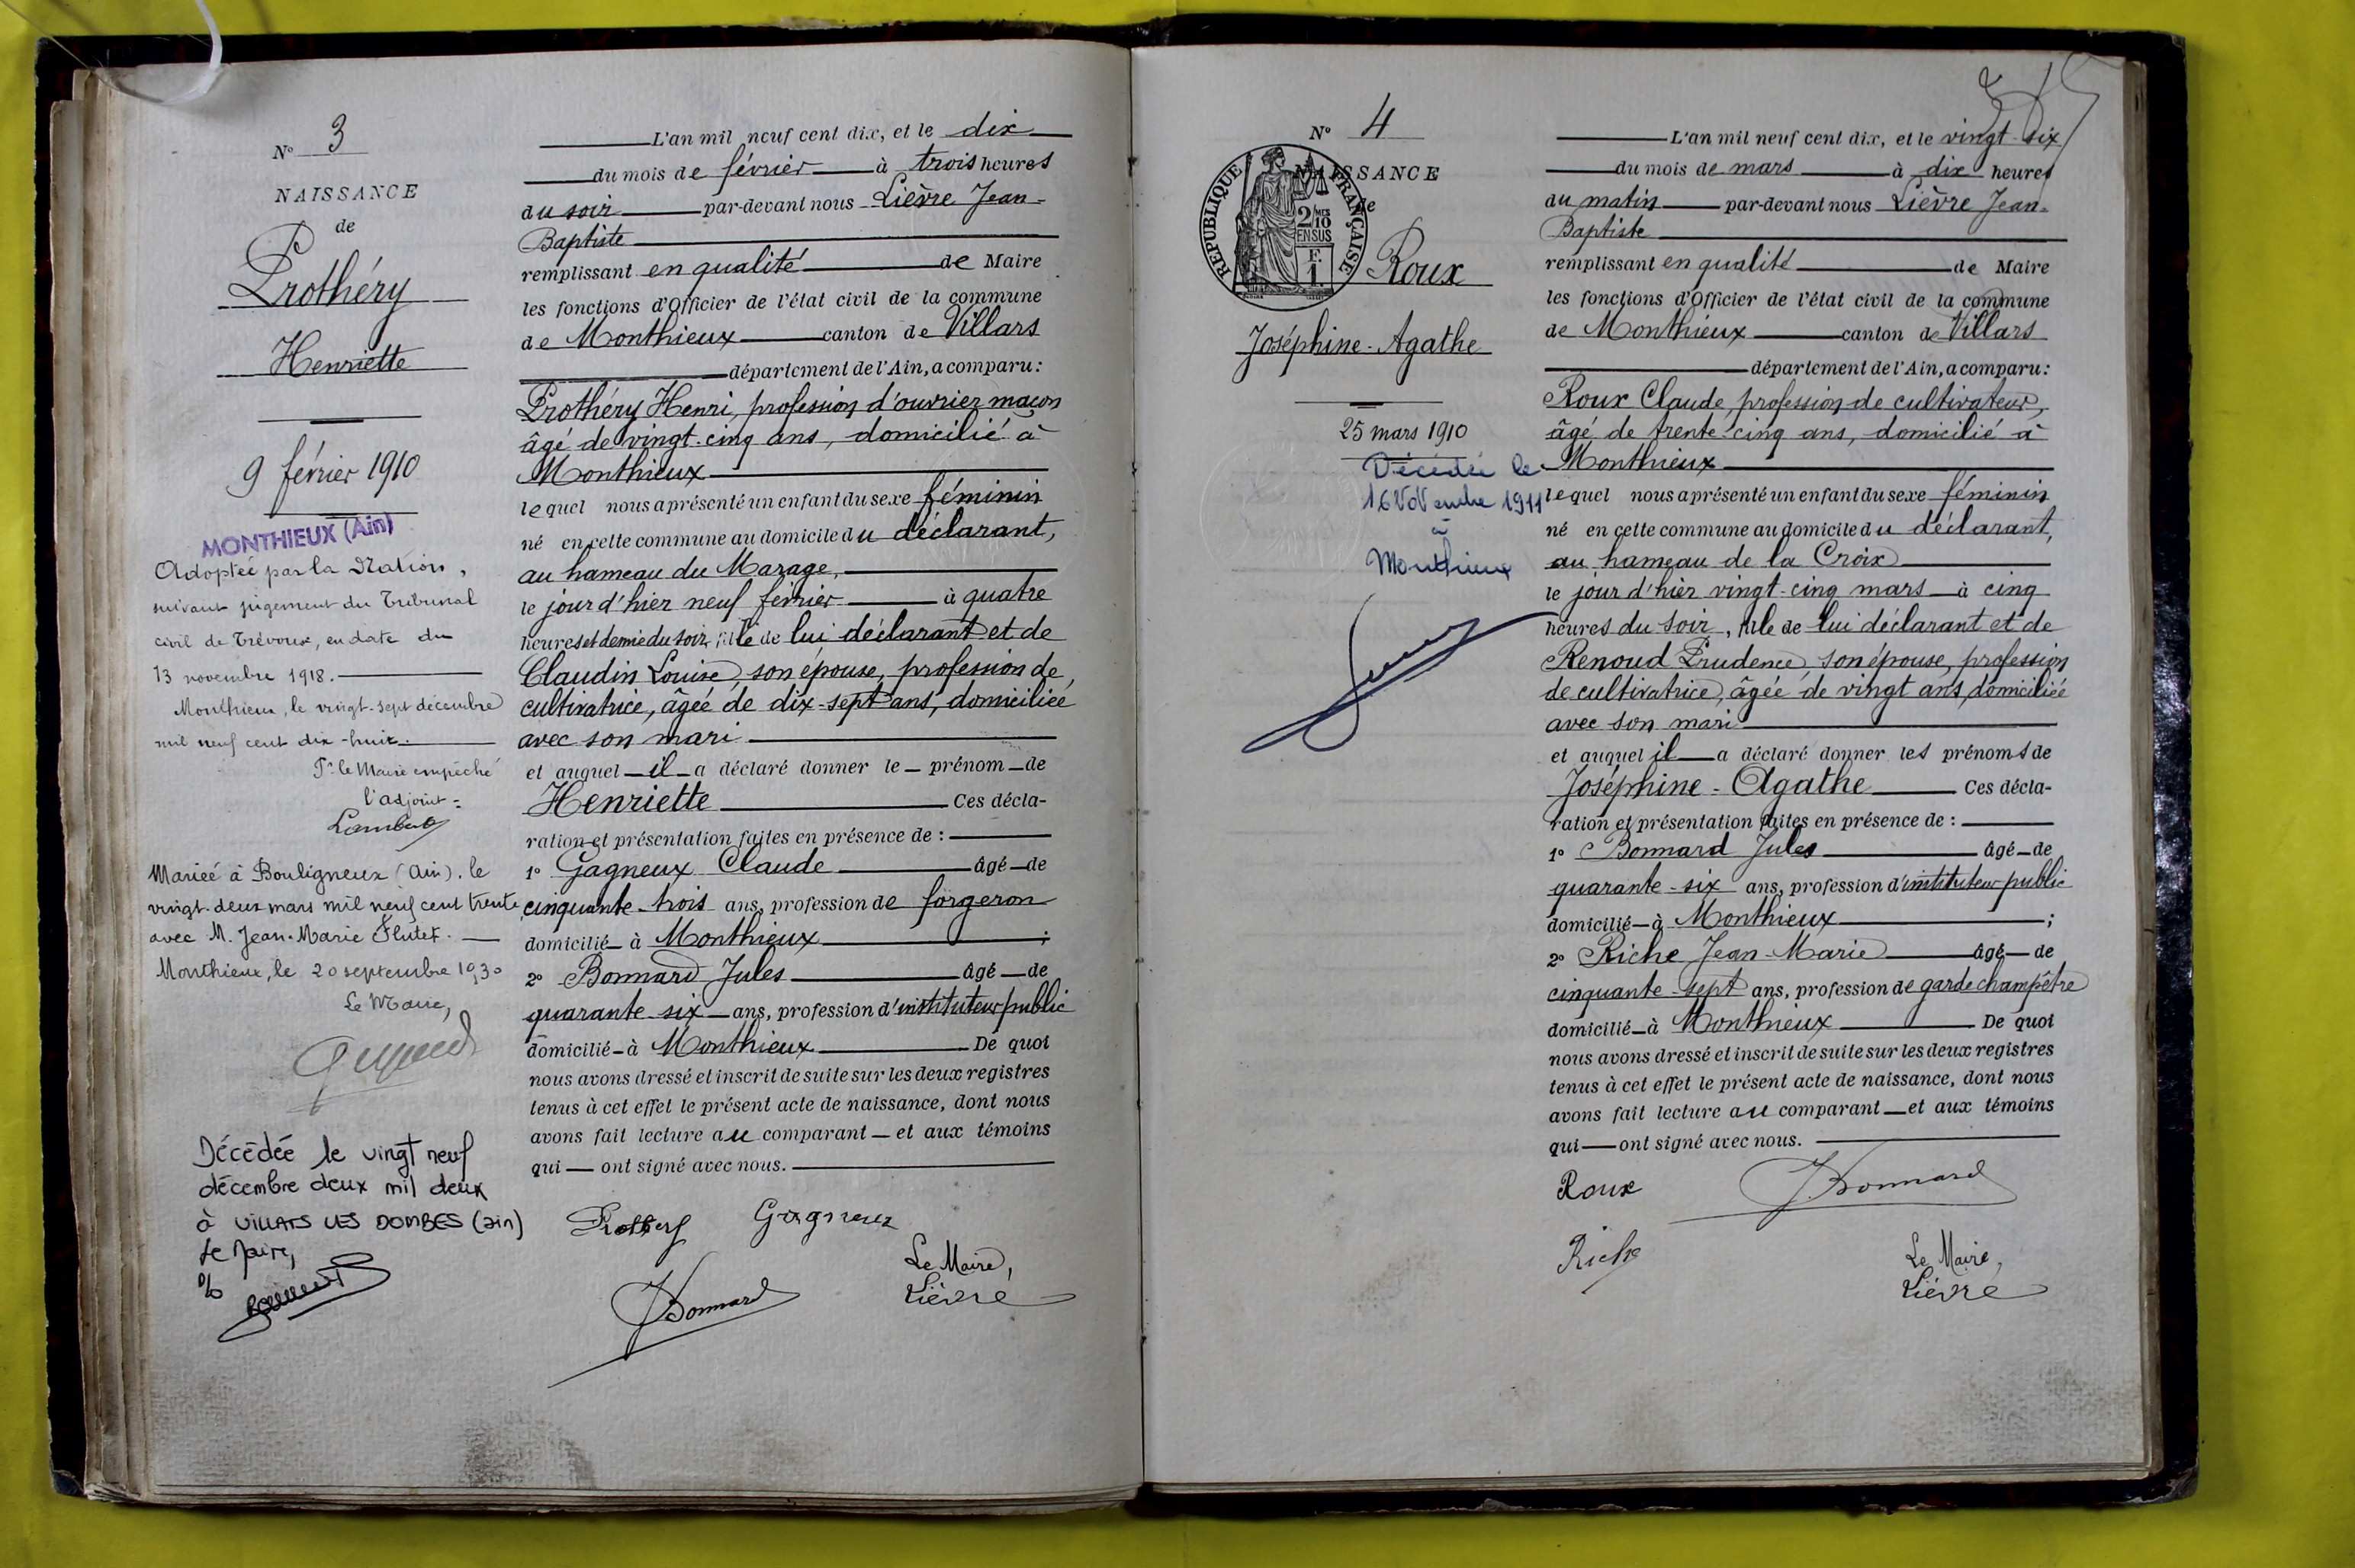 N° 3
NAISSANCE
de
Prothéry
Henriette
9 février 1910
MONTHIEUX (Ain)
Adoptée par la Nation,
suivant jugement du Tribunal
civil de Trévoux, en date du
13 novembre 1918.
Monthieux, le vingt-sept décembre
mil neuf cent dix-huit.
Pr le Maire empêché
l'adjoint
Lambert
Mariée à Bouligneux (Ain), le
vingt-deux mars mil neuf cent trente
avec M. Jean-Marie Flutet.
Monthieux, le 20 septembre 1930
Le Maire,
Décédée le vingt neuf
décembre deux mil deux
à VILLARS LES DOMBES (ain)
Le Maire,
L'an mil neuf cent dix, et le dix
du mois de février à trois heures
du soir par-devant nous Lièvre Jean-
Baptiste
remplissant en qualité de Maire
les fonctions d'Officier de l'état civil de la commune
de Monthieux canton de Villars
département de l'Ain, a comparu :
Prothéry Henri, profession d'ouvrier maçon
âgé de vingt-cinq ans, domicilié à
Monthieux
lequel nous a présenté un enfant du sexe féminin
né en cette commune au domicile du déclarant,
au hameau du Marage,
le jour d'hier neuf février à quatre
heures et demie du soir, fille de lui déclarant et de
Claudin Louise, son épouse, profession de
cultivatrice, âgée de dix-sept ans, domiciliée
avec son mari
et auquel il a déclaré donner le prénom de
Henriette Ces décla-
ration et présentation faites en présence de :
1° Gagneux Claude âgé de
cinquante-trois ans, profession de forgeron
domicilié à Monthieux ;
2° Bonnard Jules âgé de
quarante-six ans, profession d'instituteur public
domicilié à Monthieux De quoi
nous avons dressé et inscrit de suite sur les deux registres
tenus à cet effet le présent acte de naissance, dont nous
avons fait lecture au comparant et aux témoins
qui ont signé avec nous.
Prothery Gagneux
Le Maire,
JBonnard Lièvre
N° 4
NAISSANCE
de
RÉPUBLIQUE FRANÇAISE
2/10 MES
EN SUS
F.
1.
Roux
Joséphine-Agathe
25 mars 1910
Décédée le
16 Novembre 1911
à
Monthieux
L'an mil neuf cent dix, et le vingt-six
du mois de mars à dix heures
du matin par-devant nous Lièvre Jean-
Baptiste
remplissant en qualité de Maire
les fonctions d'Officier de l'état civil de la commune
de Monthieux canton de Villars
département de l'Ain, a comparu :
Roux Claude, profession de cultivateur,
âgé de trente-cinq ans, domicilié à
Monthieux
lequel nous a présenté un enfant du sexe féminin
né en cette commune au domicile du déclarant,
au hameau de la Croix
le jour d'hier vingt-cinq mars à cinq
heures du soir, fille de lui déclarant et de
Renoud Prudence, son épouse, profession
de cultivatrice, âgée de vingt ans, domiciliée
avec son mari
et auquel il a déclaré donner les prénoms de
Joséphine-Agathe Ces décla-
ration et présentation faites en présence de :
1° Bonnard Jules âgé de
quarante-six ans, profession d'instituteur public
domicilié à Monthieux ;
2° Riche Jean-Marie âgé de
cinquante-sept ans, profession de garde champêtre
domicilié à Monthieux De quoi
nous avons dressé et inscrit de suite sur les deux registres
tenus à cet effet le présent acte de naissance, dont nous
avons fait lecture au comparant et aux témoins
qui ont signé avec nous.
Roux JBonnard
Riche Le Maire,
Lièvre